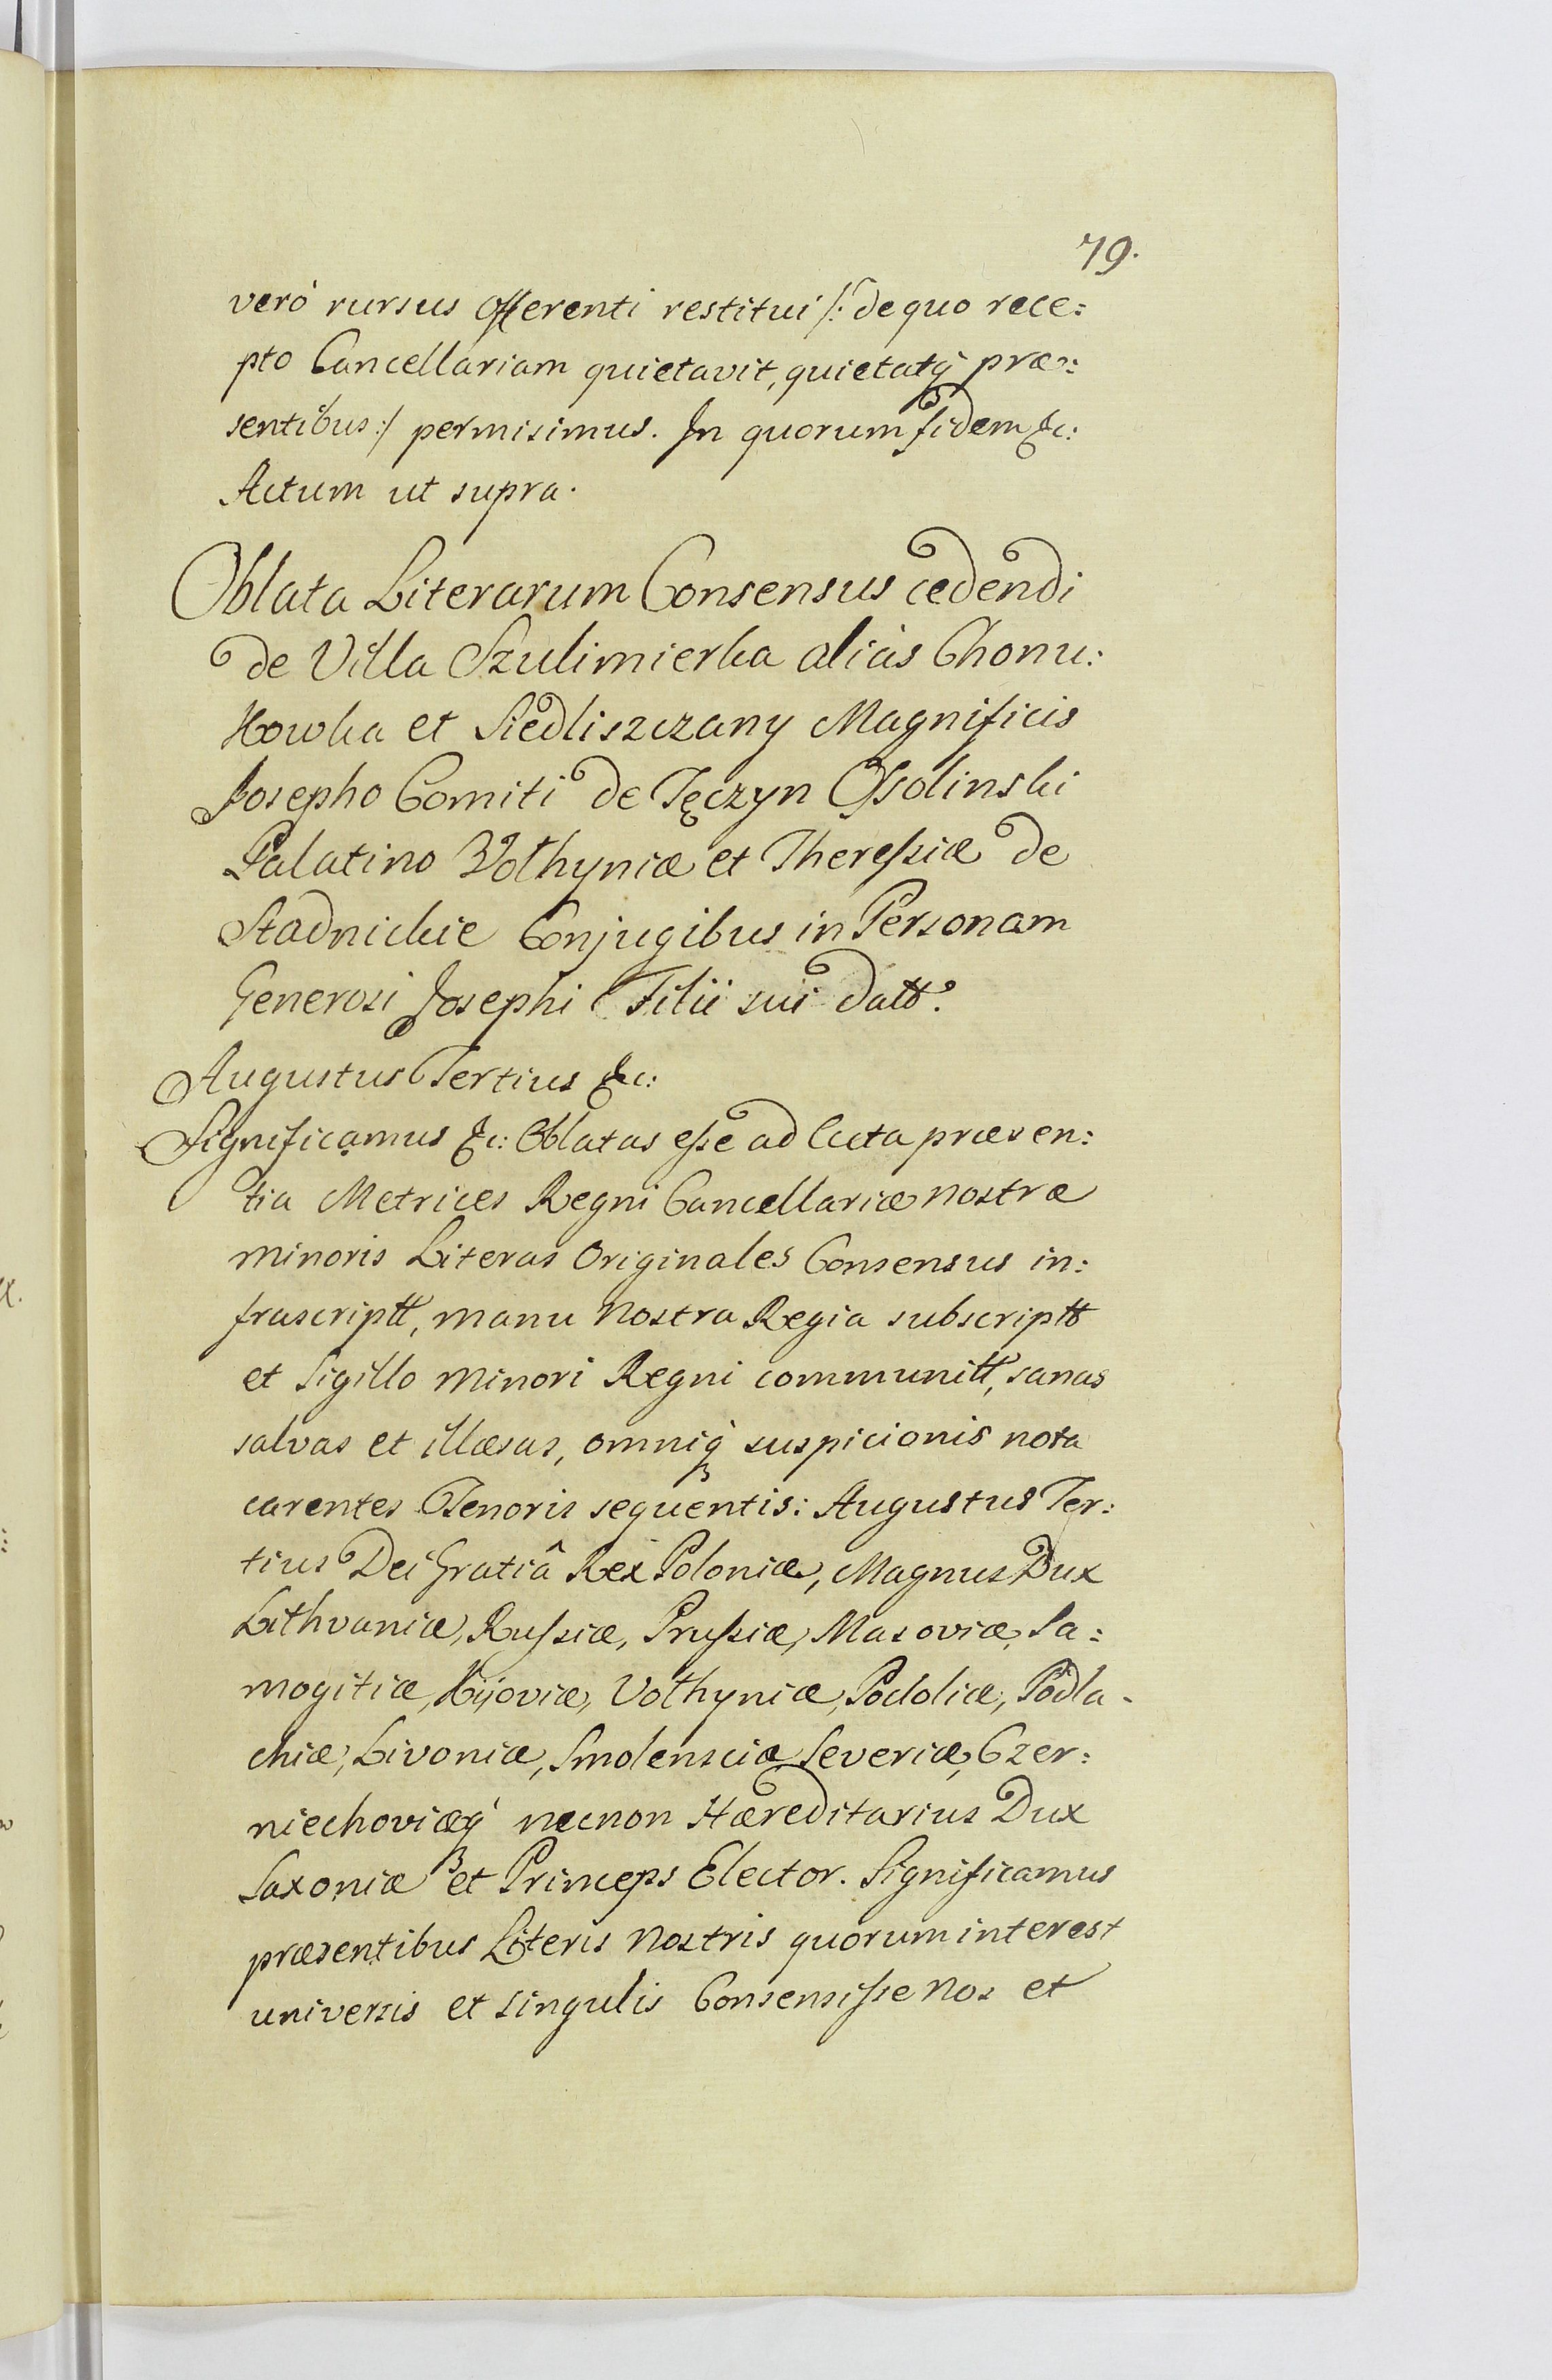 79.
verò rursus Offerenti restitui /: de quo rece:
pto Cancellariam quietavit, quietatq̃ præ:
sentibus :/ permisimus. In quorum fidem &c:
Actum ut supra.
Oblata Literarum Consensus cedendi
de Villa Szulimierka aliàs Chonu:
Howka et Siedliszczany Magnificis
Josepho Comiti de Tęczyn Ossolinski
Palatino Volhyniæ et Theressiæ de
Stadnickie Conjugibus in Personam
Generosi Josephi Filii sui datt.
Augustus Tertius &c:
Significamus &c: Oblatas esse ad Acta præsen:
tia Metrices Regni Cancellariæ nostræ
minoris Literas Originales Consensus in:
frascriptt, manu nostra Regia subscriptt
et Sigillo minori Regni communitt, sanas
salvas et illæsas, omniq̃ suspicionis nota
carentes Tenoris sequentis: Augustus Ter:
tius Dei Gratiâ Rex Poloniæ, Magnus Dux
Lithvaniæ, Russiæ, Prussiæ, Masoviæ, Sa:
mogitiæ, Kijoviæ, Volhyniæ, Podoliæ, Podla-
chiæ, Livoniæ, Smolensciæ Severiæ, Czer:
niechoviæq̃ necnon Hæreditarius Dux
Saxoniæ et Princeps Elector. Significamus
præsentibus Literis nostris quorum interest
universis et singulis Consensisse Nos et